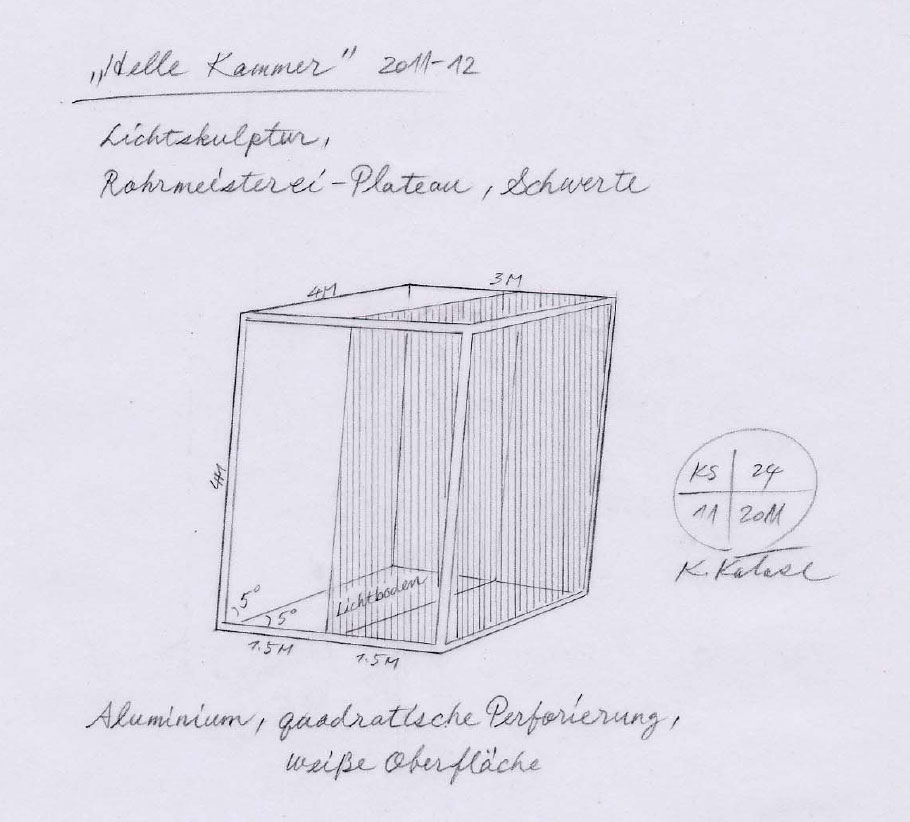 „Helle Kammer" 2011-12
Lichtskulptur,
Rohrmeisterei-Plateau, Schwerte
4M
3M
4M
5°
5°
Lichtboden
1.5M
1.5M
KS 24
11 2011
K. Katase
Aluminium, quadratische Perforierung,
weiße Oberfläche